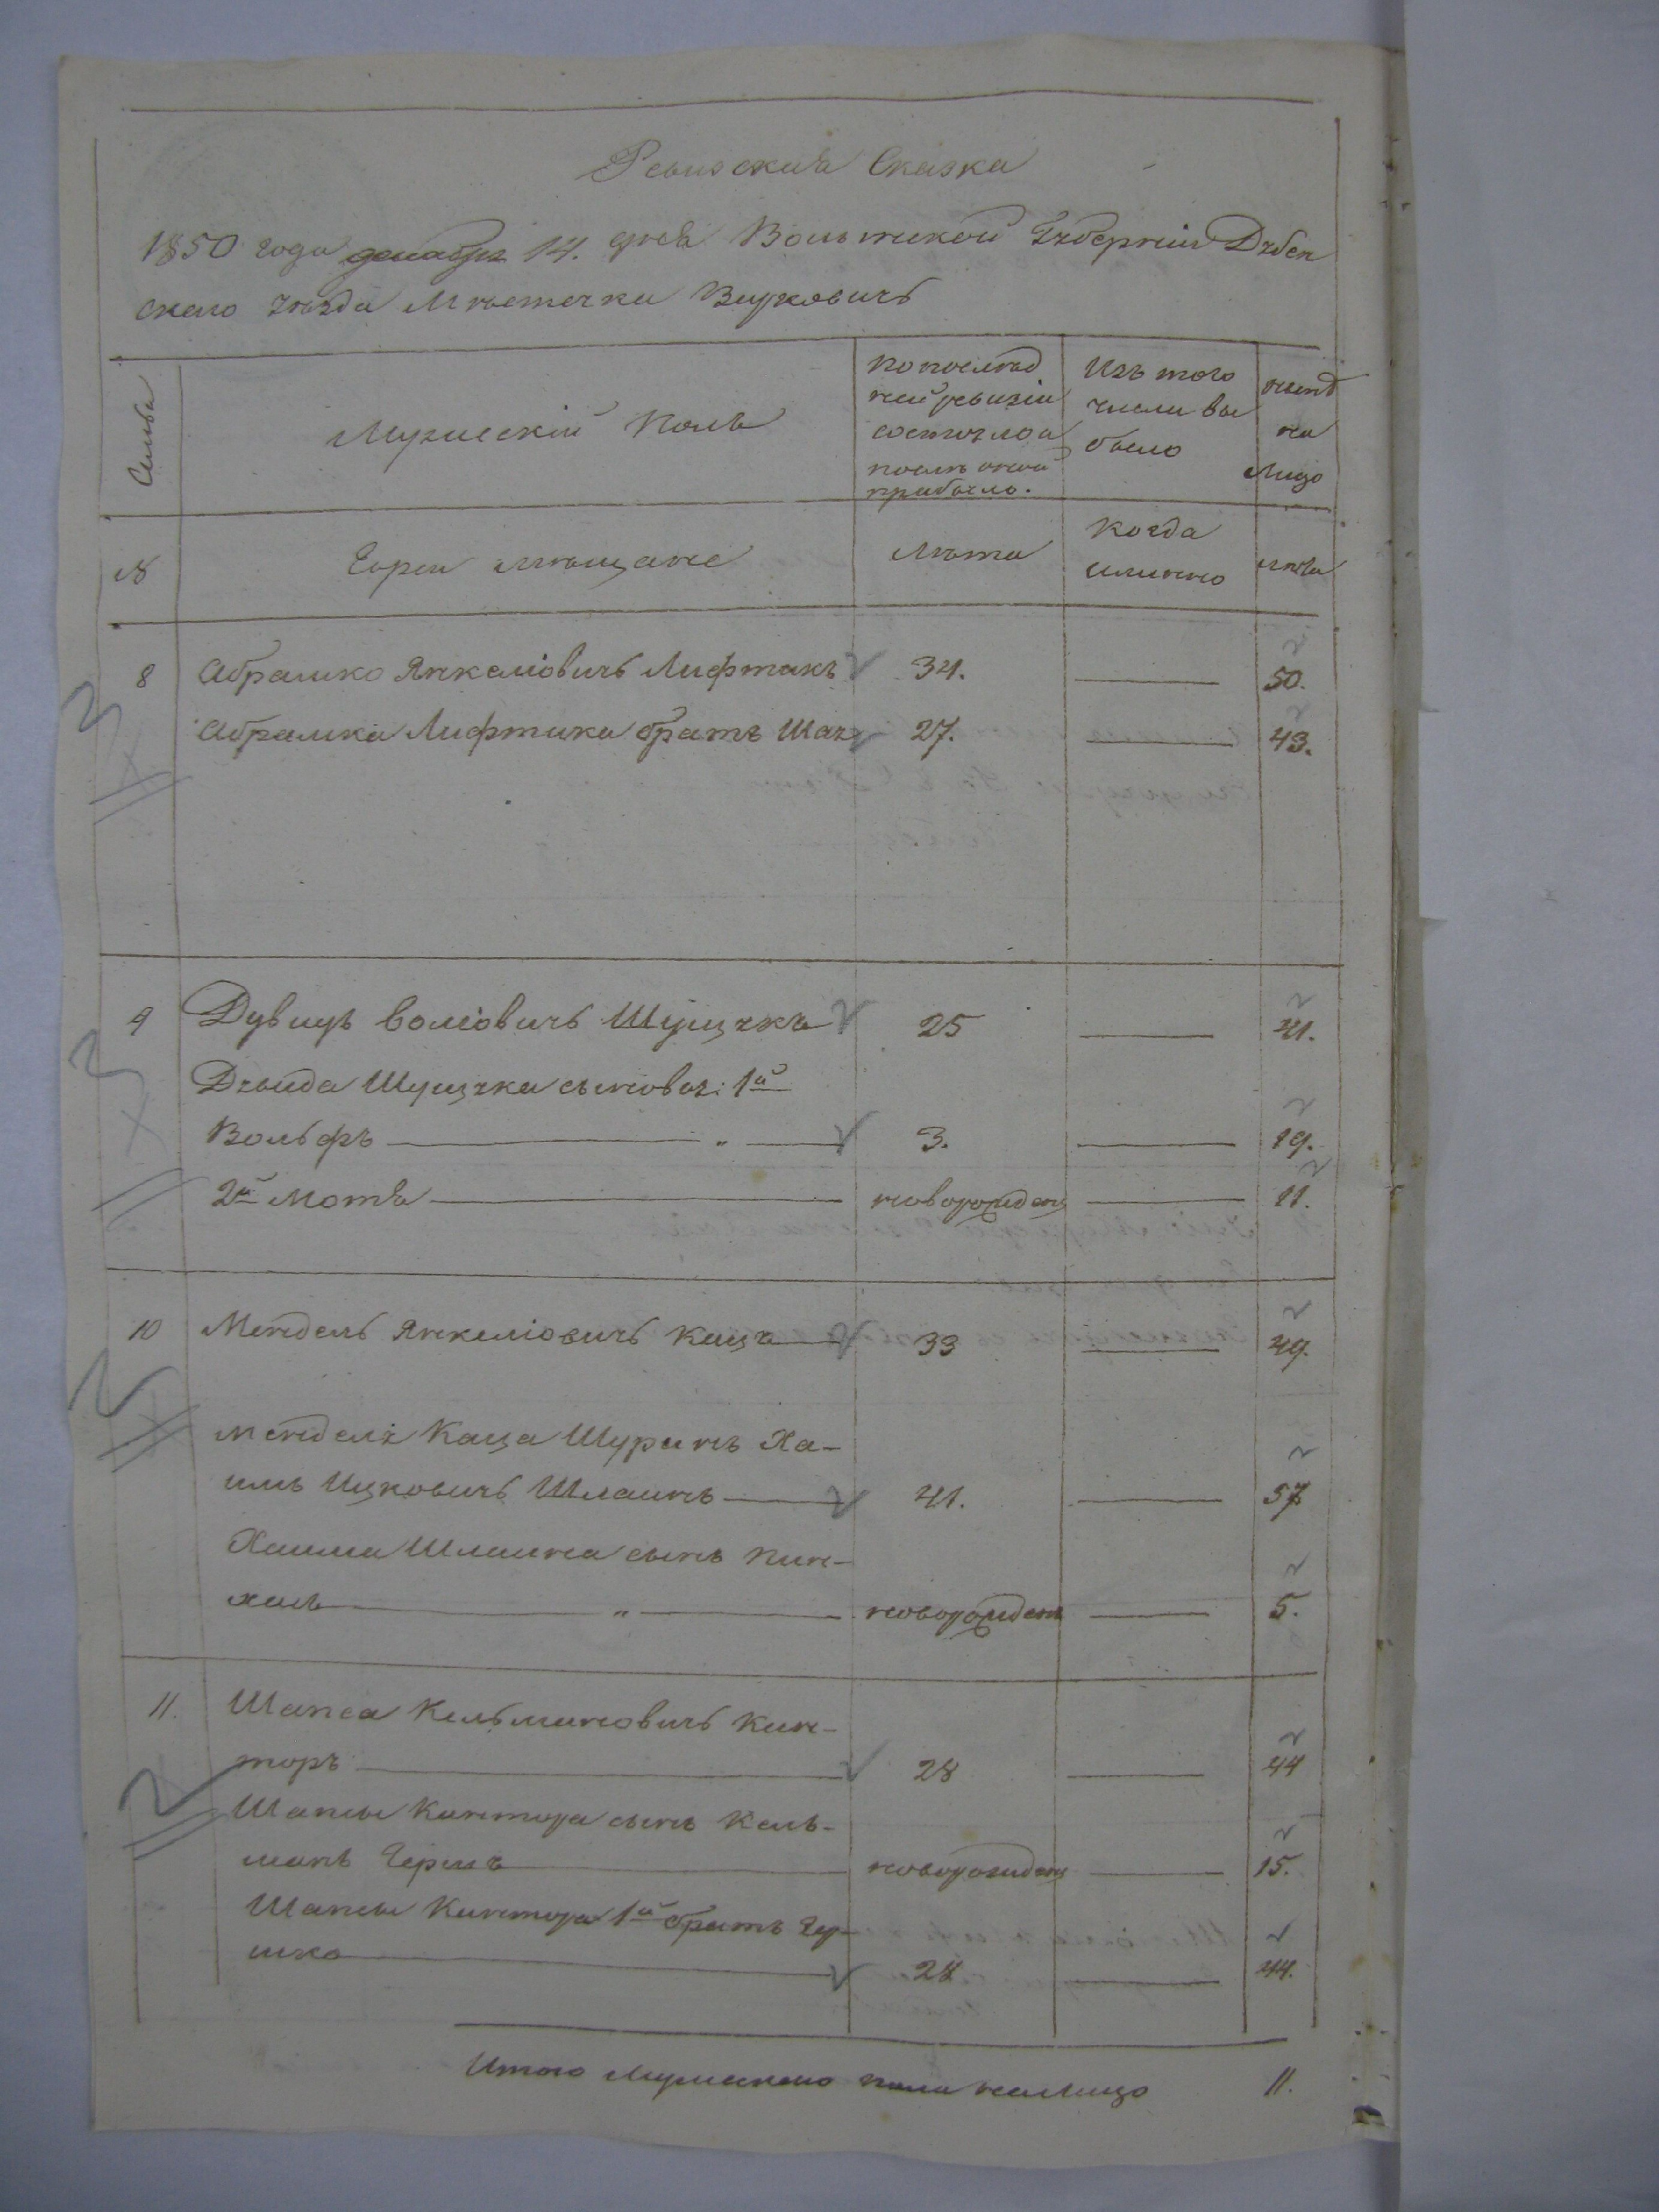 Ревизская Сказка
1850 года декабря 14. дня Волынской Губернии Дубен
скаго уѣзда Мѣстечка Верковичь
Семьи
Мужескій Полъ
По послѣд
ней ревизіи
состояло и
послѣ оной
прибыло.
Изъ того
числа вы
было
нынѣ
на
Лицо
№
Евреи мѣщане
Лѣта
Когда
именно
лѣта
8 Абрамко Янкеліовичь Лифтакъ 34. 50.
Абрамка Лифтака братъ Шая 27. 43.
9 Дувидъ Воліовичь Шущукъ 25 41.
Дувида Шущука сыновья: 1й
Вольфъ " 3. 19.
2й Мотя новорожден 11.
10 Мендель Янкеліовичь Кацъ 33 49.
Менделя Каца Шуринъ Ха-
имъ Ицковичь Шлаинъ 41. 57
Хаима Шлаина сынъ Пин-
хась " новорожден 5.
11. Шапса Кельмановичь Кан-
торъ 28 44
Шапсы Кантора сынъ Кель-
манъ Гершъ новорожден 15.
Шапсы Кантора 1й братъ Іу-
шко 28 44.
Итого Мужескаго пола на Лицо 11.